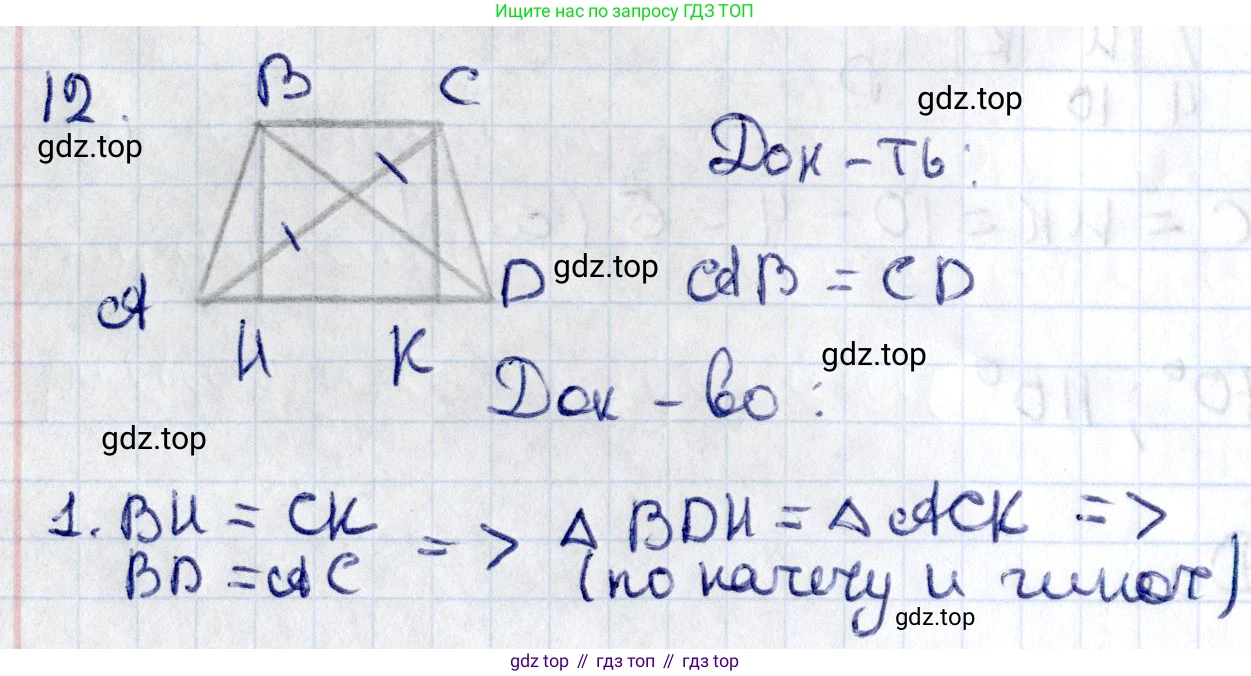 Ищите нас по запросу ГДЗ ТОП
12.
B C
gdz.top
gdz.top
Док-ть:
A
D
gdz.top
AB = CD
H K
gdz.top
Док-во:
gdz.top
1. BH = CK
BD = AC
=> △ BDH = △ ACK =>
(по катету и гипот)
gdz.top
gdz top // гдз топ // gdz top